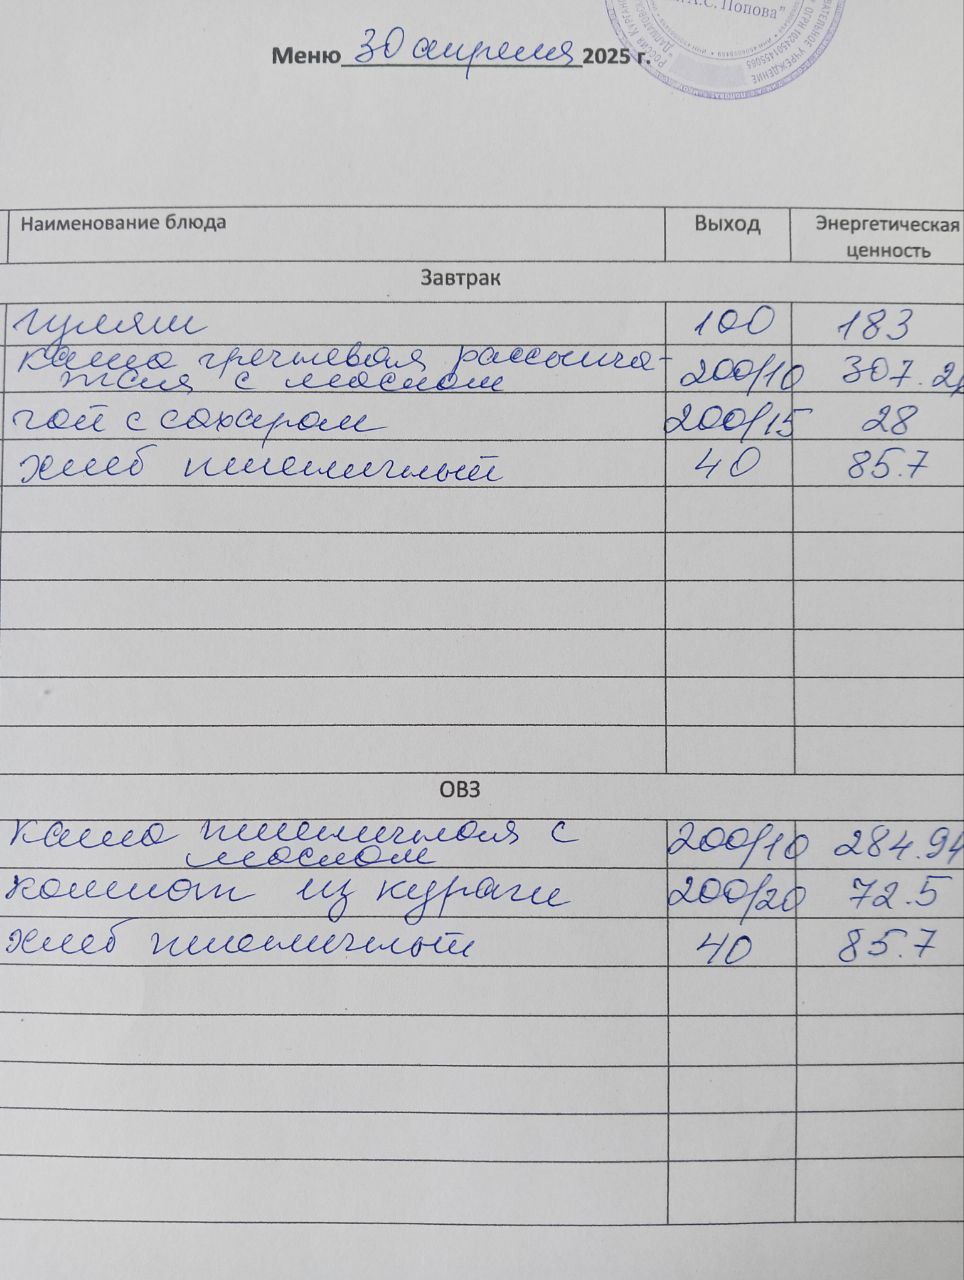 А.С. Попова"
Меню 30 апреля 2025 г.
Наименование блюда Выход Энергетическая ценность
Завтрак
гуляш 100 183
каша гречневая рассыпча-
тая с маслом 200/10 307.2
чай с сахаром 200/15 28
хлеб пшеничный 40 85.7
ОВЗ
каша пшеничная с
маслом 200/10 284.94
компот из кураги 200/20 72.5
хлеб пшеничный 40 85.7